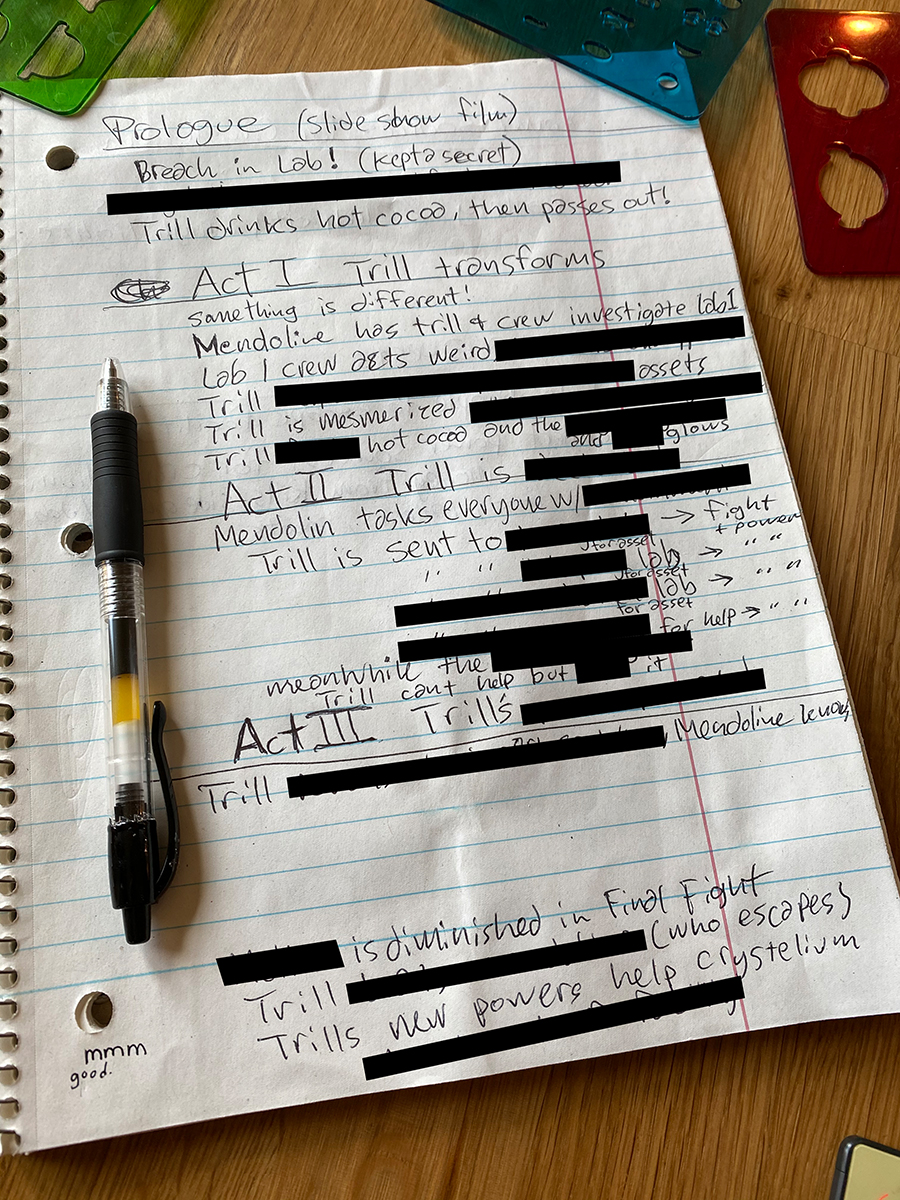 Prologue (slide show film)
Breach in Lab! (kept a secret)
Trill drinks hot cocoa, then passes out!
Act I Trill transforms
something is different!
Mendoline has trill & crew investigate lab 1
Lab 1 crew acts weird
Trill assets
Trill is mesmerized
Trill hot cocoa and the
and glows
Act II Trill is
Mendolin tasks everyone w/
Trill is sent to → fight + power
for asset
" " lab → " "
for asset
lab → " "
for asset
for help → " "
meanwhile the
Trill cant help but it
Act III Trill's
Mendoline
Trill
is diminished in Final Fight
Trill (who escapes)
Trills new powers help crystelium
mmm
good.